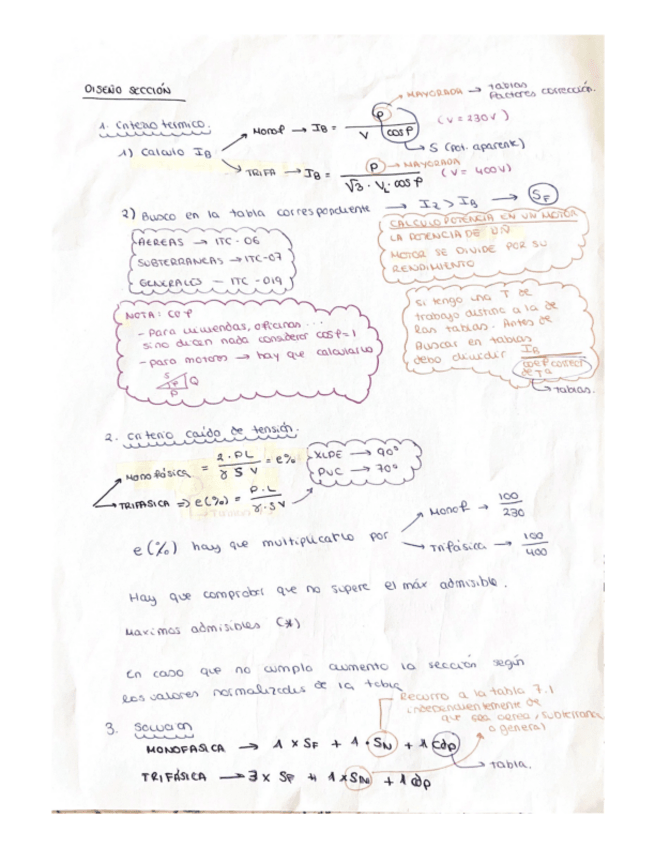 DISEÑO SECCIÓN
MAYORADA → tablas
Factores corrección.
1. Criterio térmico.
1) Cálculo IB
MONOF → IB = P / V cosφ
(V = 230V)
S (pot. aparente)
TRIFA → IB = P / √3 · VL · cosφ
→ MAYORADA
(V = 400V)
2) Busco en la tabla correspondiente → IZ > IB → SF
AEREAS → ITC-06
SUBTERRANEAS → ITC-07
GENERALES — ITC-019
CALCULO POTENCIA EN UN MOTOR
LA POTENCIA DE UN
MOTOR SE DIVIDE POR SU
RENDIMIENTO
NOTA: COSφ
- Para viviendas, oficinas ...
si no dicen nada considerar cosφ=1
- para motores → hay que calcularlo
S
φ
Q
P
Si tengo una T de
trabajo distinta a la de
las tablas. Antes de
Buscar en tablas
debo dividir IB
coef correct
de Tª
→ tablas.
2. Criterio caída de tensión.
MONOFÁSICA = 2·PL / γ S V = e%
XLPE → 90°
PVC → 70°
TRIFASICA => e(%) = P·L / γ·S·V
e(%) hay que multiplicarlo por
Monof → 100/230
Trifásica → 100/400
Hay que comprobar que no supere el máx admisible.
Maximos admisibles (*)
En caso que no cumpla aumento la sección según
los valores normalizados de la tabla
Recurro a la tabla 7.1
independientemente de
que sea aerea, subterranea
o general
3. Solucion
MONOFASICA → 1 x SF + 1 · SN + 1 Cdp
→ tabla.
TRIFÁSICA → 3 x SF + 1 x SN + 1 Cdp